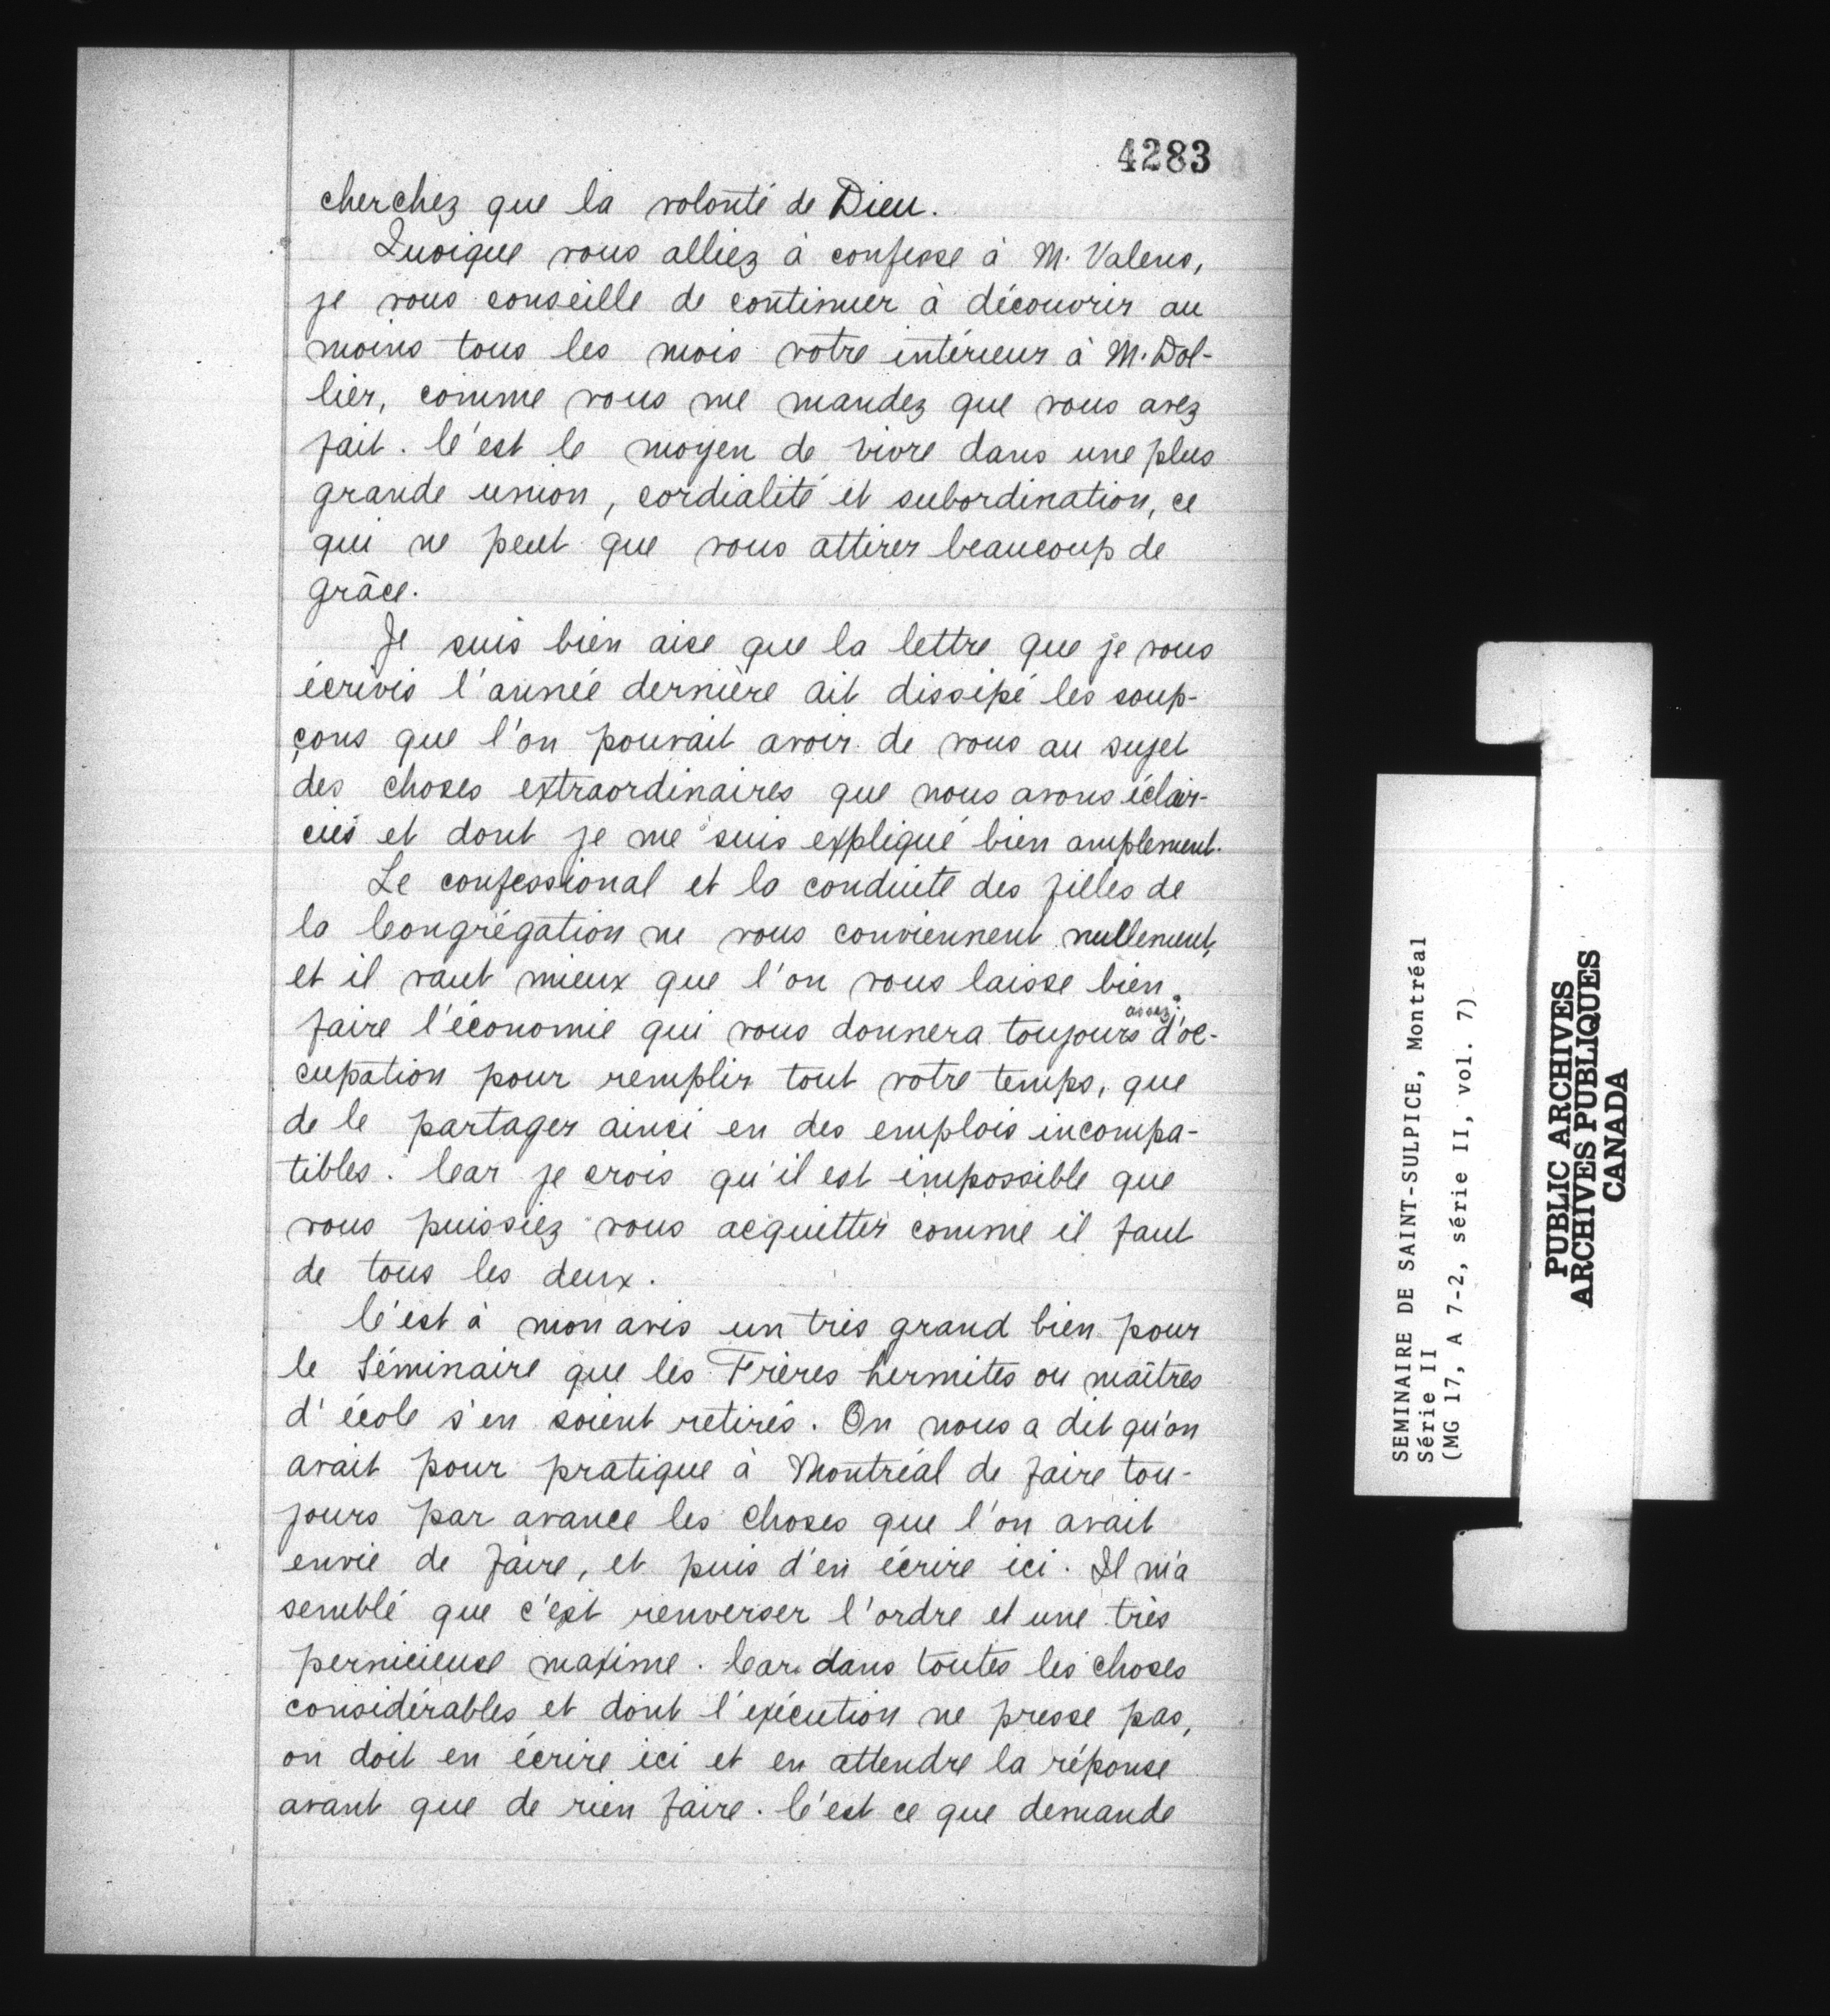 4283
cherchez que la volonté de Dieu.
Quoique vous alliez à confesse à M. Valens,
je vous conseille de continuer à découvrir au
moins tous les mois votre intérieur à M. Dol-
lier, comme vous me mandez que vous avez
fait. C'est le moyen de vivre dans une plus
grande union, cordialité et subordination, ce
qui ne peut que vous attirer beaucoup de
grâce.
Je suis bien aise que la lettre que je vous
écrivis l'année dernière ait dissipé les soup-
çons que l'on pouvait avoir de vous au sujet
des choses extraordinaires que nous avons éclair-
cies et dont je me suis expliqué bien amplement.
Le confessional et la conduite des filles de
la Congrégation ne vous conviennent nullement,
et il vaut mieux que l'on vous laisse bien
faire l'économie qui vous donnera toujours assez d'oc-
cupation pour remplir tout votre temps, que
de le partager ainsi en des emplois incompa-
tibles. Car je crois qu'il est impossible que
vous puissiez vous acquitter comme il faut
de tous les deux.
C'est à mon avis un très grand bien pour
le Séminaire que les Frères hermites ou maîtres
d'école s'en soient retirés. On nous a dit qu'on
avait pour pratique à Montréal de faire tou-
jours par avance les choses que l'on avait
envie de faire, et puis d'en écrire ici. Il m'a
semblé que c'est renverser l'ordre et une très
pernicieuse maxime. Car dans toutes les choses
considérables et dont l'exécution ne presse pas,
on doit en écrire ici et en attendre la réponse
avant que de rien faire. C'est ce que demande
SEMINAIRE DE SAINT-SULPICE, Montréal
Série II
(MG 17, A 7-2, série II, vol. 7)
PUBLIC ARCHIVES
ARCHIVES PUBLIQUES
CANADA